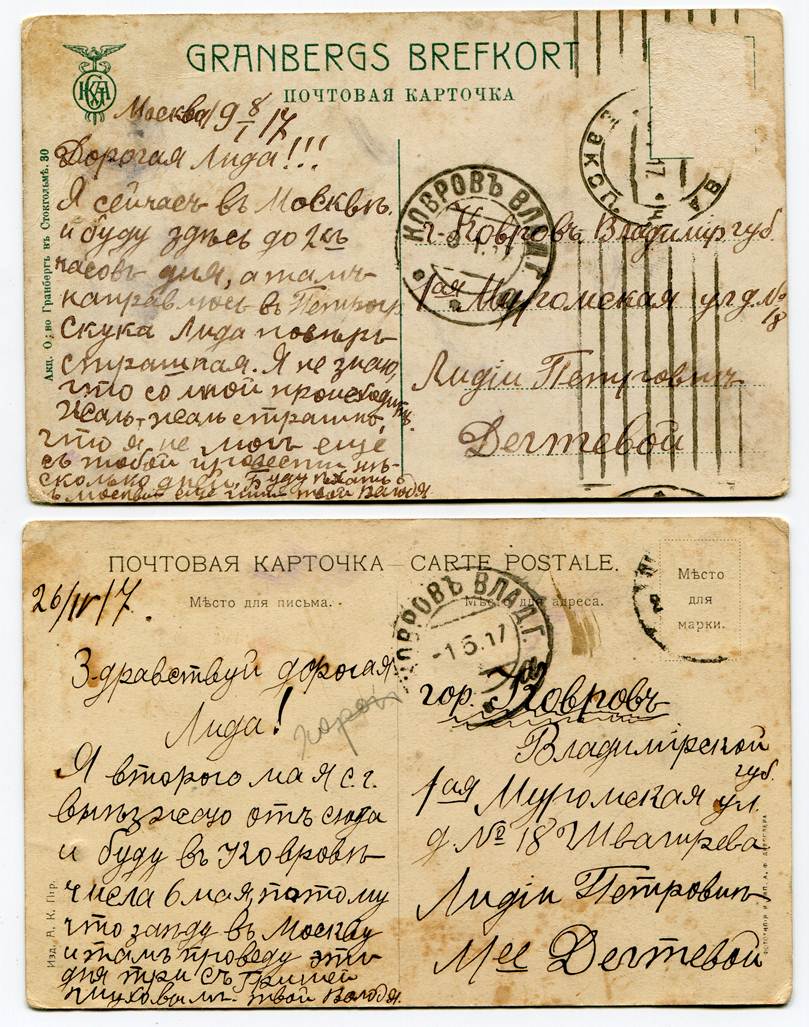 GRANBERGS BREFKORT
ПОЧТОВАЯ КАРТОЧКА
Москва 9 8/I 17
Дорогая Лида!!!
Я сейчасъ въ Москвѣ.
и буду здѣсь до 2хъ
часовъ дня, а тамъ
направлюсь въ
Скука Лида повѣрь
страшная. Я не знаю,
что со мной происходитъ.
Жаль, жаль страшно,
что я не могъ ещё
съ тобой провести нѣ-
сколько дней. Буду
въ Москвѣ ещё твой Володя
Акц. О-во Гранбергъ въ Стокгольмѣ. 30
КОВРОВЪ ВЛАД.Г.
г. Ковровъ Владимір губ.
1ая Муромская ул. д. №
18
Лидіи Петровнѣ
Дегтевой
ПОЧТОВАЯ КАРТОЧКА — CARTE POSTALE.
26/IV 17.
Мѣсто для письма.
Мѣсто для адреса.
Мѣсто
для
марки.
КОВРОВЪ ВЛАД.Г.
-1 5.17
Здравствуй дорогая
Лида!
Я второго мая с. г.
выѣзжаю отъ сюда
и буду въ Ковровѣ
числа 6 мая, потому
что заѣду въ Москву
и тамъ проведу эти
дня три съ Гришей
твой Володя.
Изд. А. К. Пгр.
гор. Ковровъ
Владимірской
губ.
1ая Муромская ул.
д № 18 Швагрева
Лидіи Петровнѣ
Мее Дегтевой